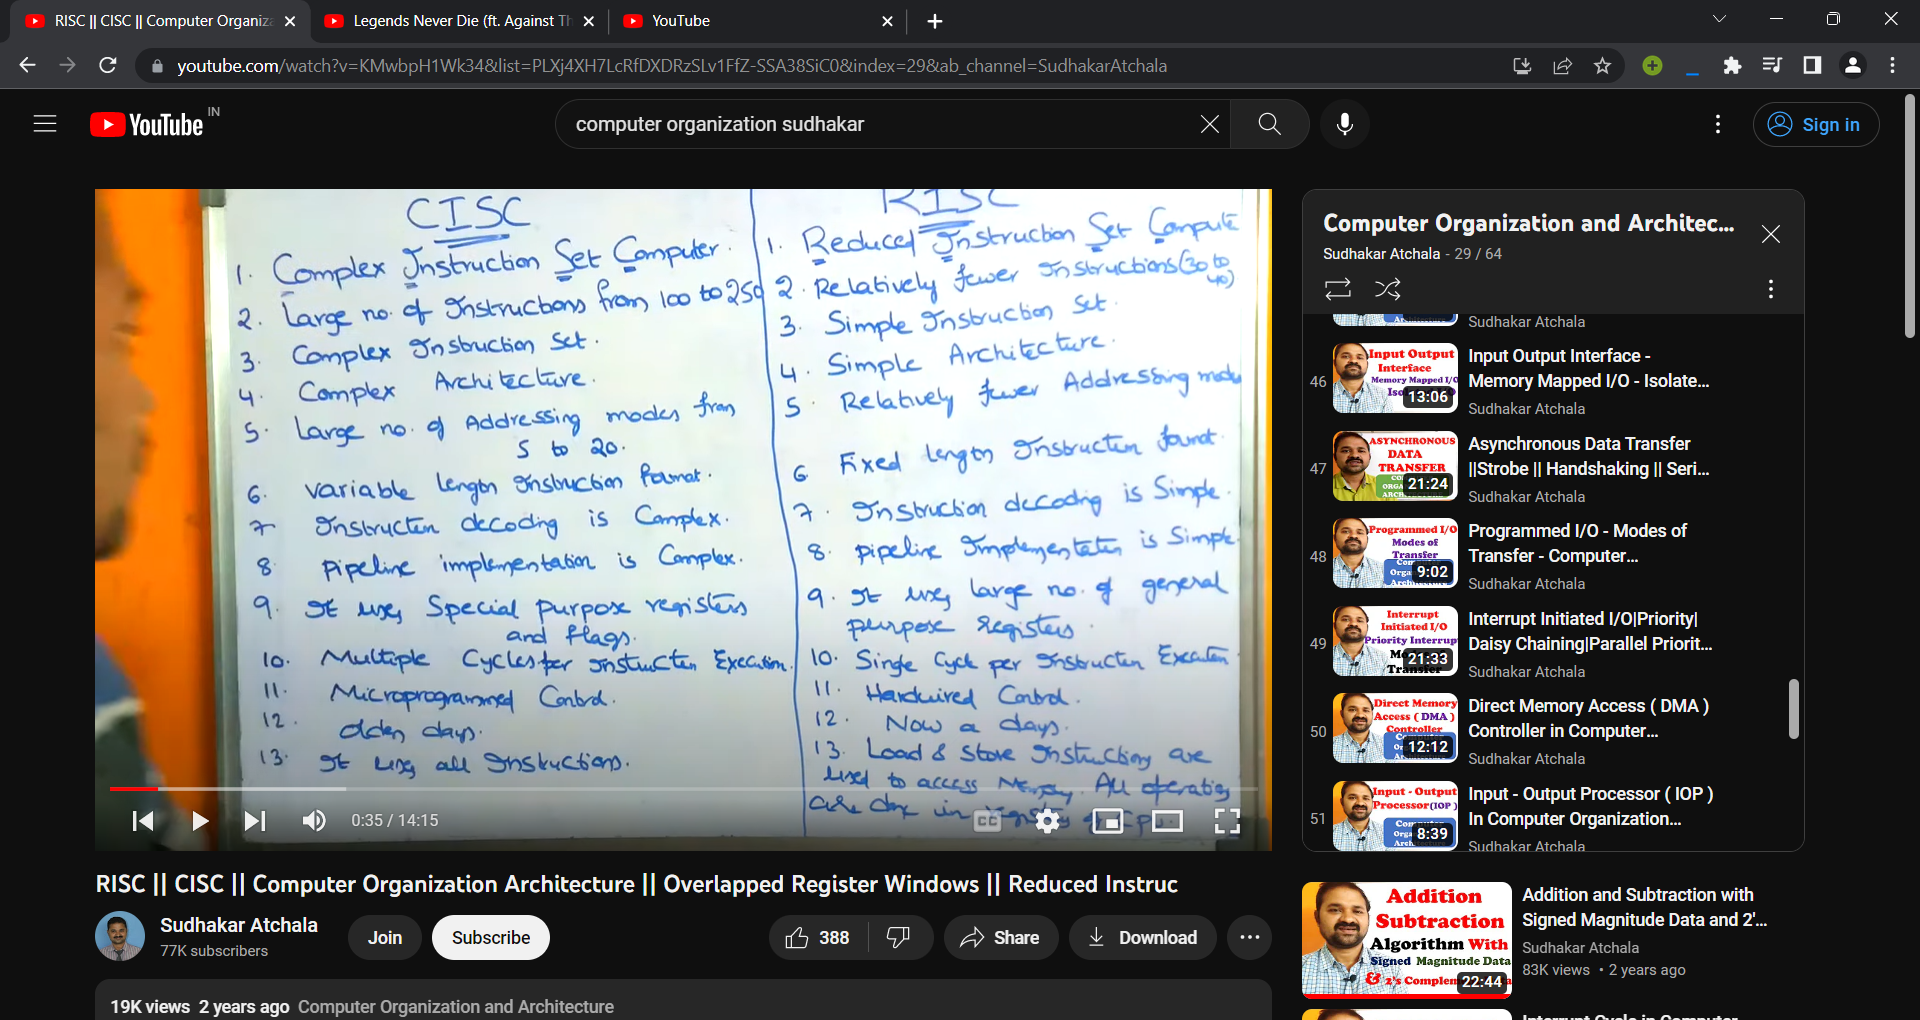 RISC || CISC || Computer Organiza
Legends Never Die (ft. Against Th
YouTube
youtube.com/watch?v=KMwbpH1Wk34&list=PLXj4XH7LcRfDXDRzSLv1FfZ-SSA38SiC0&index=29&ab_channel=SudhakarAtchala
YouTube IN
computer organization sudhakar
Sign in
CISC
1. Complex Instruction Set Computer.
2. Large no. of Instructions from 100 to 250
3. Complex Instruction Set.
4. Complex Architecture.
5. Large no. of Addressing modes from
5 to 20.
6. Variable length Instruction Format.
7 Instruction decoding is Complex.
8 Pipeline implementation is Complex.
9. It uses Special purpose registers
and flags.
10. Multiple Cycles per Instruction Execution.
11. Microprogrammed Control.
12. Olden days.
13. It uses all Instructions.
RISC
1. Reduced Instruction Set Compute
2. Relatively fewer Instructions (30 to
40)
3. Simple Instruction Set.
4. Simple Architecture.
5. Relatively fewer Addressing mode
6 Fixed length Instruction format.
7. Instruction decoding is Simple.
8. Pipeline Implementation is Simple.
9. It uses large no. of general
purpose Registers.
10. Single Cycle per Instruction Execution.
11. Hardwired Control.
12. Now a days.
13. Load & Store Instructions are
used to access Memory. All operations
are done in registers of CPU.
0:35 / 14:15
CC
RISC || CISC || Computer Organization Architecture || Overlapped Register Windows || Reduced Instruc
Sudhakar Atchala
77K subscribers
Join
Subscribe
388
Share
Download
19K views 2 years ago Computer Organization and Architecture
Computer Organization and Architec...
Sudhakar Atchala - 29 / 64
Sudhakar Atchala
46
Input Output
Interface
Memory Mapped I/O
13:06
Input Output Interface -
Memory Mapped I/O - Isolate...
Sudhakar Atchala
47
ASYNCHRONOUS
DATA
TRANSFER
21:24
Asynchronous Data Transfer
||Strobe || Handshaking || Seri...
Sudhakar Atchala
48
Programmed I/O
Modes of
Transfer
9:02
Programmed I/O - Modes of
Transfer - Computer...
Sudhakar Atchala
49
Interrupt
Initiated I/O
Priority Interrup
21:33
Interrupt Initiated I/O|Priority|
Daisy Chaining|Parallel Priorit...
Sudhakar Atchala
50
Direct Memory
Access ( DMA )
Controller
12:12
Direct Memory Access ( DMA )
Controller in Computer...
Sudhakar Atchala
51
Input - Output
Processor(IOP )
8:39
Input - Output Processor ( IOP )
In Computer Organization...
Sudhakar Atchala
Addition
Subtraction
Algorithm With
Signed Magnitude Data
& 2's Complem
22:44
Addition and Subtraction with
Signed Magnitude Data and 2'...
Sudhakar Atchala
83K views • 2 years ago
Interrupt Cycle in Computer